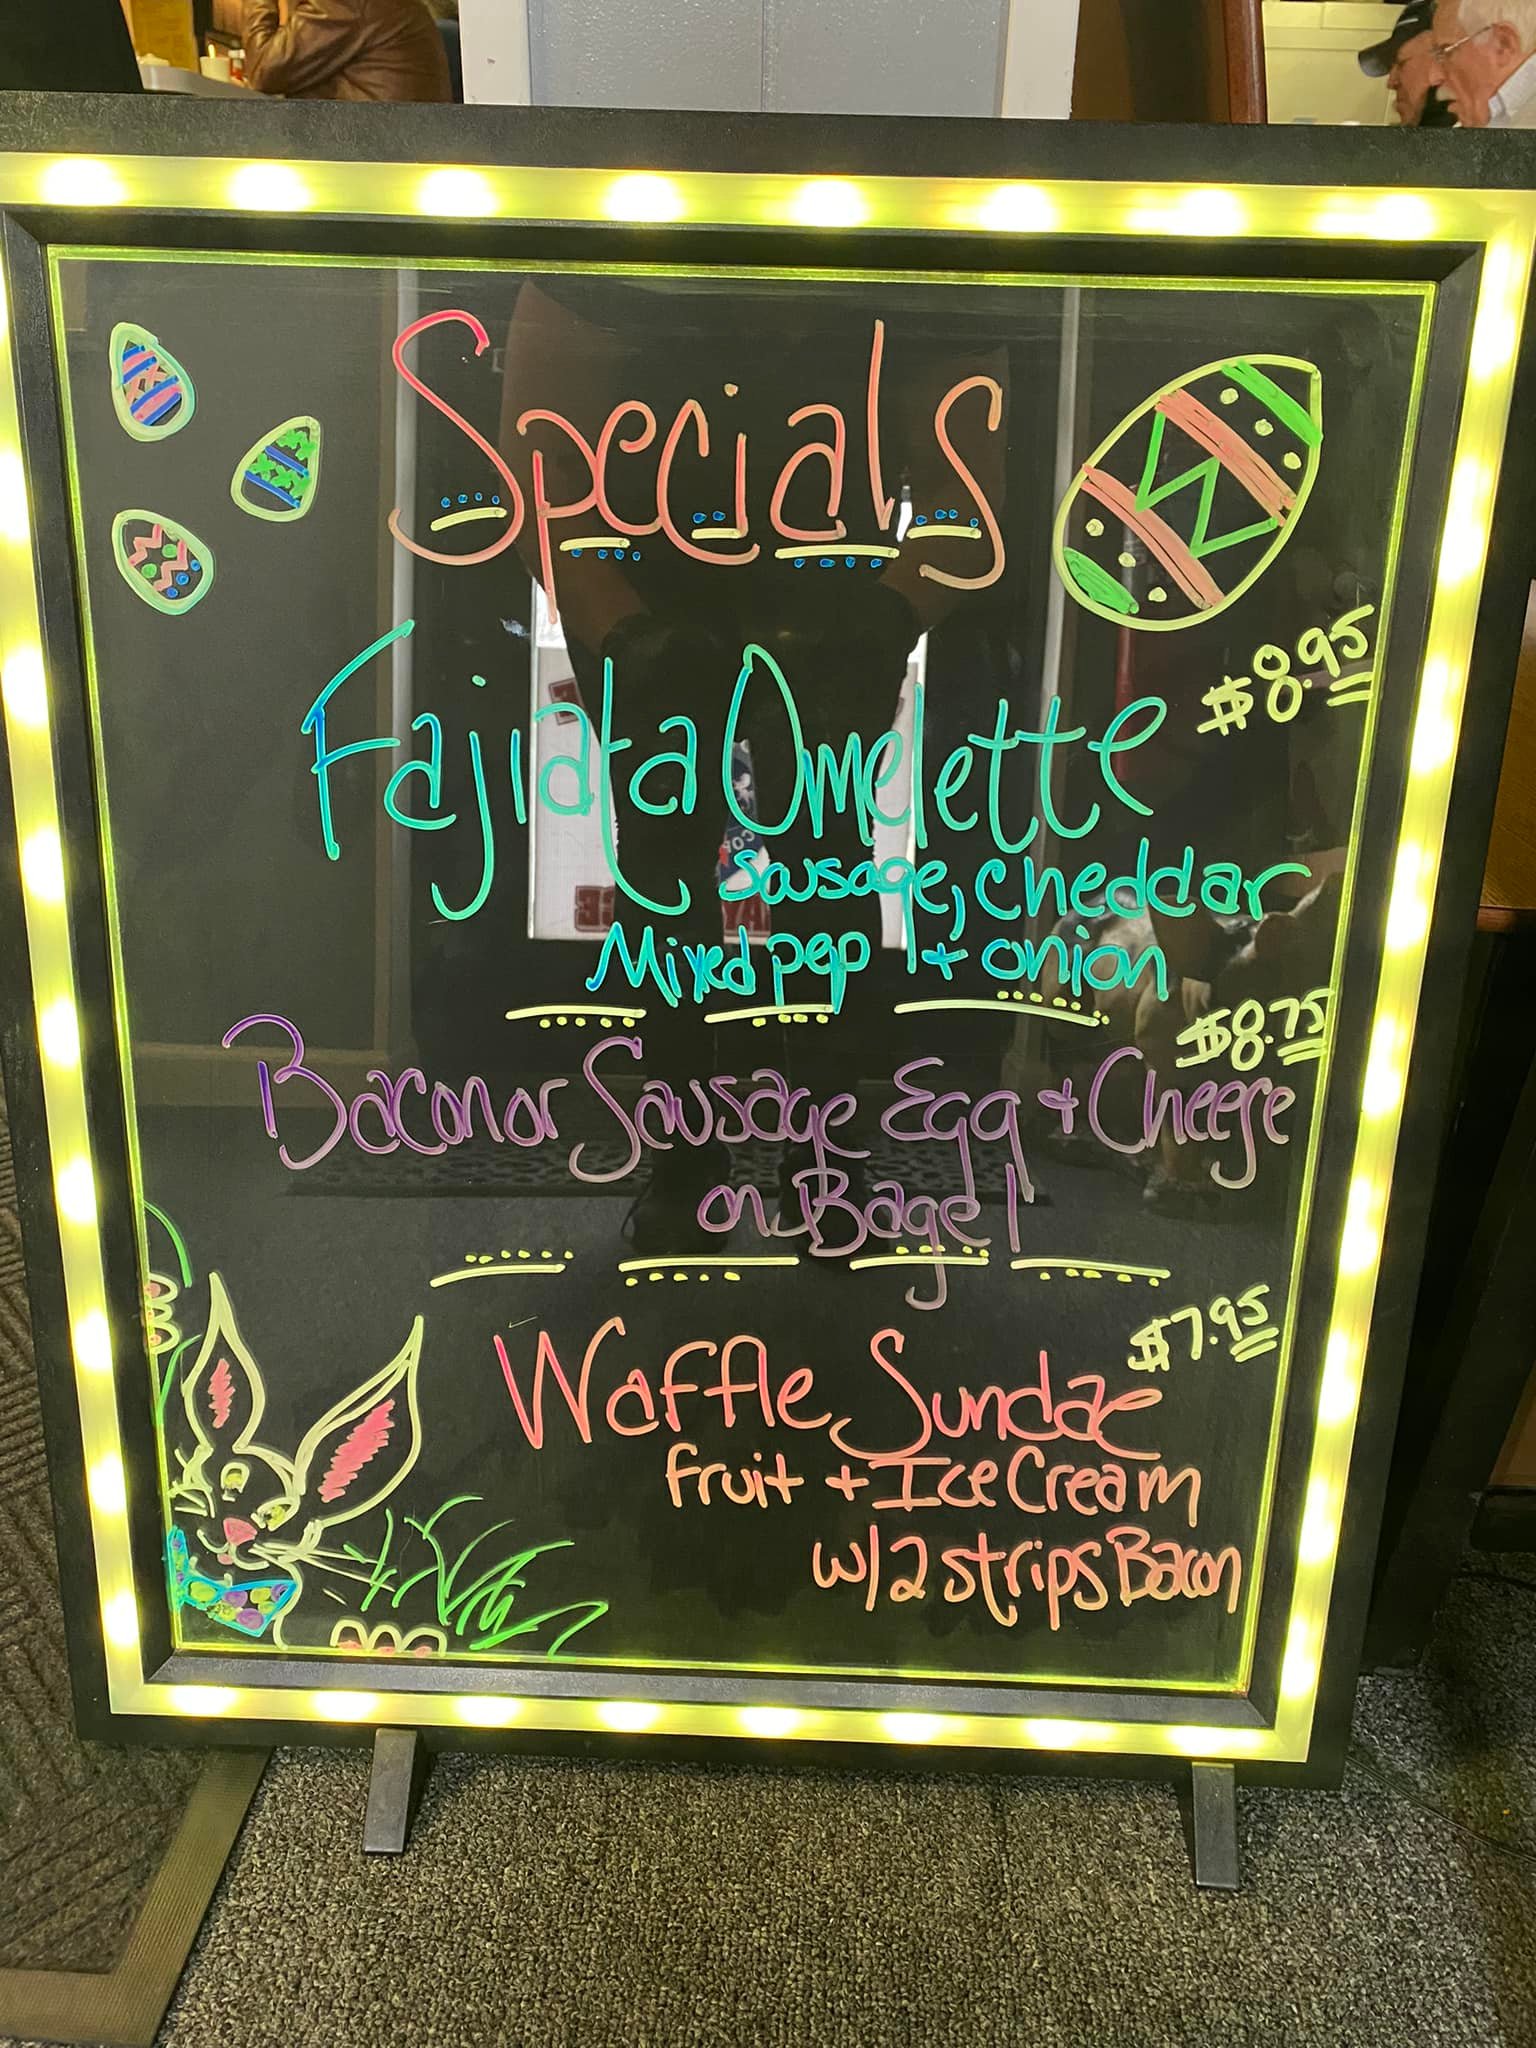 Specials
$8.95
Fajiata Omelette
Sausage, cheddar
Mixed pep + onion
$8.75
Bacon or Sausage Egg + Cheese
on Bagel
$7.95
Waffle Sundae
Fruit + Ice Cream
w/2 strips Bacon